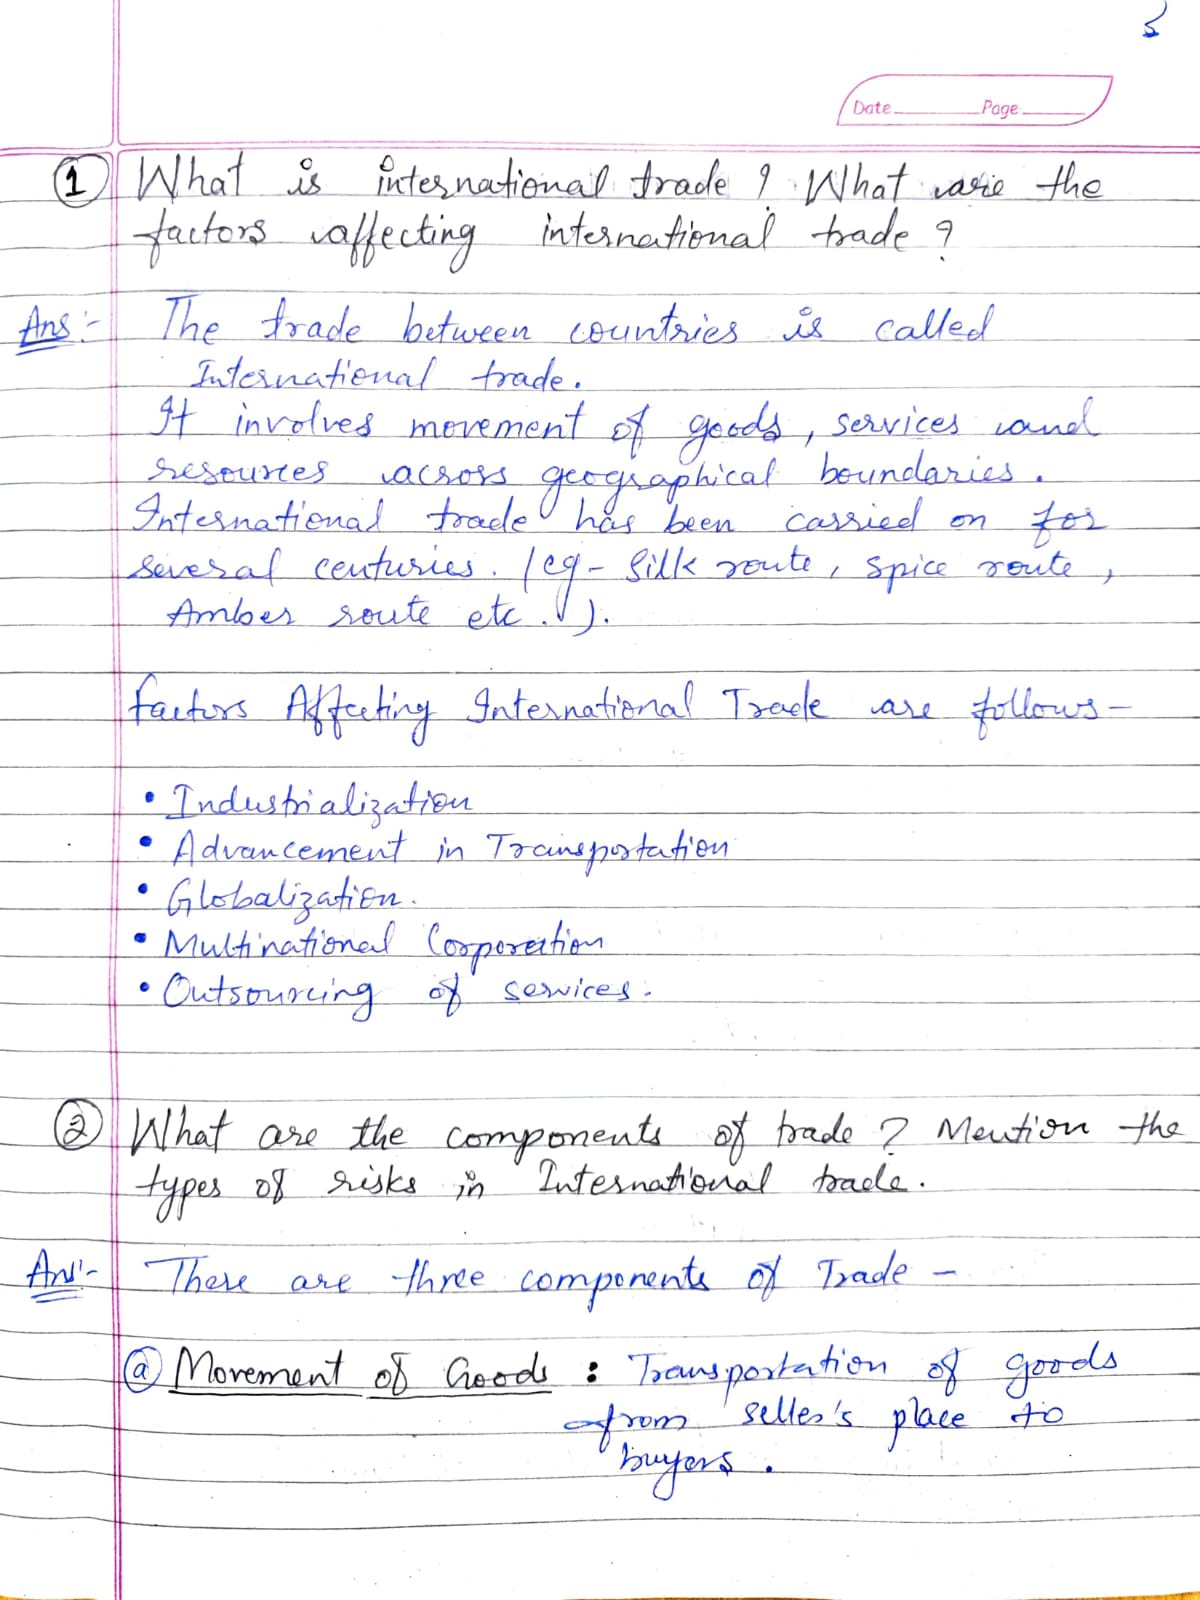 5
Date Page
1 What is international trade ? What are the
factors affecting international trade ?
Ans :- The trade between countries is called
International trade.
It involves movement of goods, services and
resources across geographical boundaries.
International trade has been carried on for
several centuries. (eg - Silk route, Spice route,
Amber route etc. ).
Factors Affecting International Trade are follows -
• Industrialization
• Advancement in Transportation
• Globalization.
• Multinational Corporation
• Outsourcing of services.
2 What are the components of trade ? Mention the
types of risks in International trade.
Ans :- There are three components of Trade -
a Movement of Goods : Transportation of goods
from seller's place to
buyers.